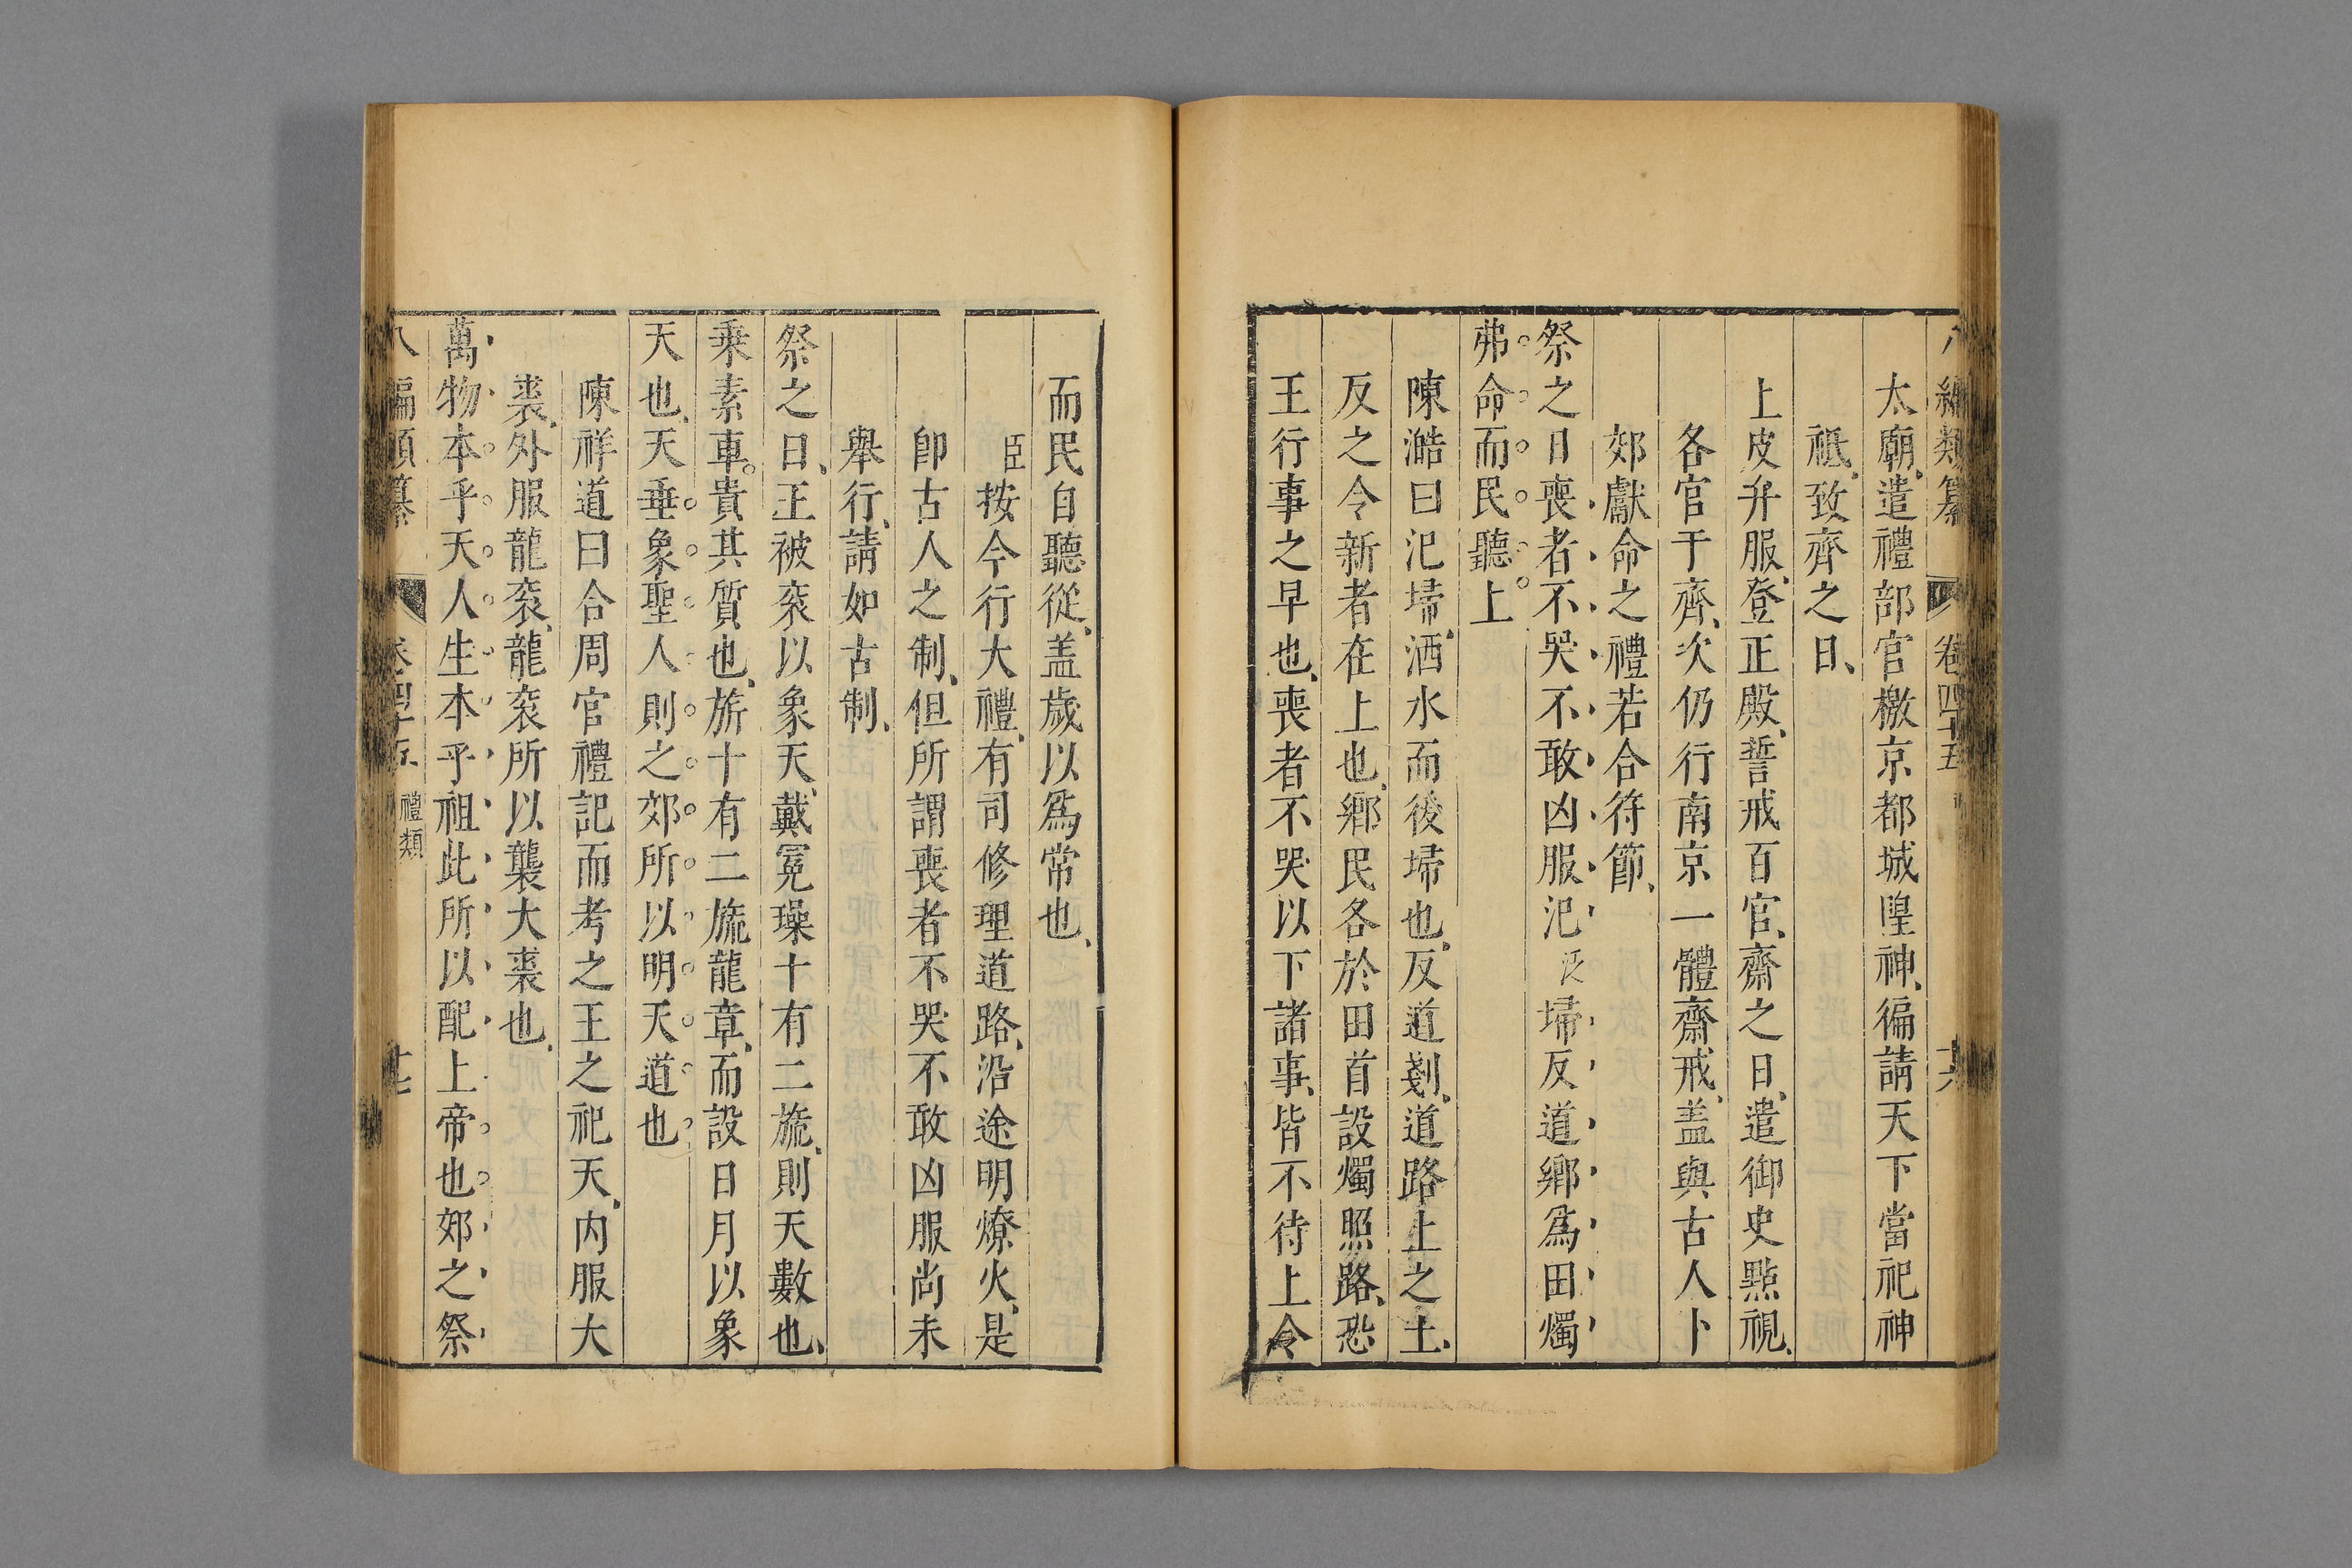 編類纂 卷四十五 十六
太廟、遣禮部官檄京都城隍神、徧請天下當祀神
祗、致齊之日、
上皮弁服、登正殿、誓戒百官、齋之日、遣御史㸃視、
各官于齊、次仍行南京一體齋戒、盖與古人卜
郊獻命之禮若合符節、
祭之日喪者不哭不敢凶服汜泛埽反道鄉爲田燭
弗命而民聽上
陳澔曰汜埽、洒水而後埽也、反道剗、道路上之土、
反之令新者在上也、鄉民各於田首設燭照路、恐
王行事之早也、喪者不哭以下諸事、皆不待上令
而民自聽從、盖歲以爲常也、
臣按今行大禮、有司修理道路、沿途明燎火、是
卽古人之制、但所謂喪者不哭不敢凶服尚未
舉行、請如古制、
祭之日、王被衮以象天、戴冕璪十有二旒、則天數也、
乗素車。貴其質也、旂十有二旒龍章、而設日月以象
天也、天垂象聖人則之郊所以明天道也
陳祥道曰合周官禮記而考之王之祀天、内服大
裘、外服龍衮、龍衮所以襲大裘也、
萬物本乎天人生本乎祖此所以配上帝也郊之祭
八編類纂 卷四十五 禮類 十七